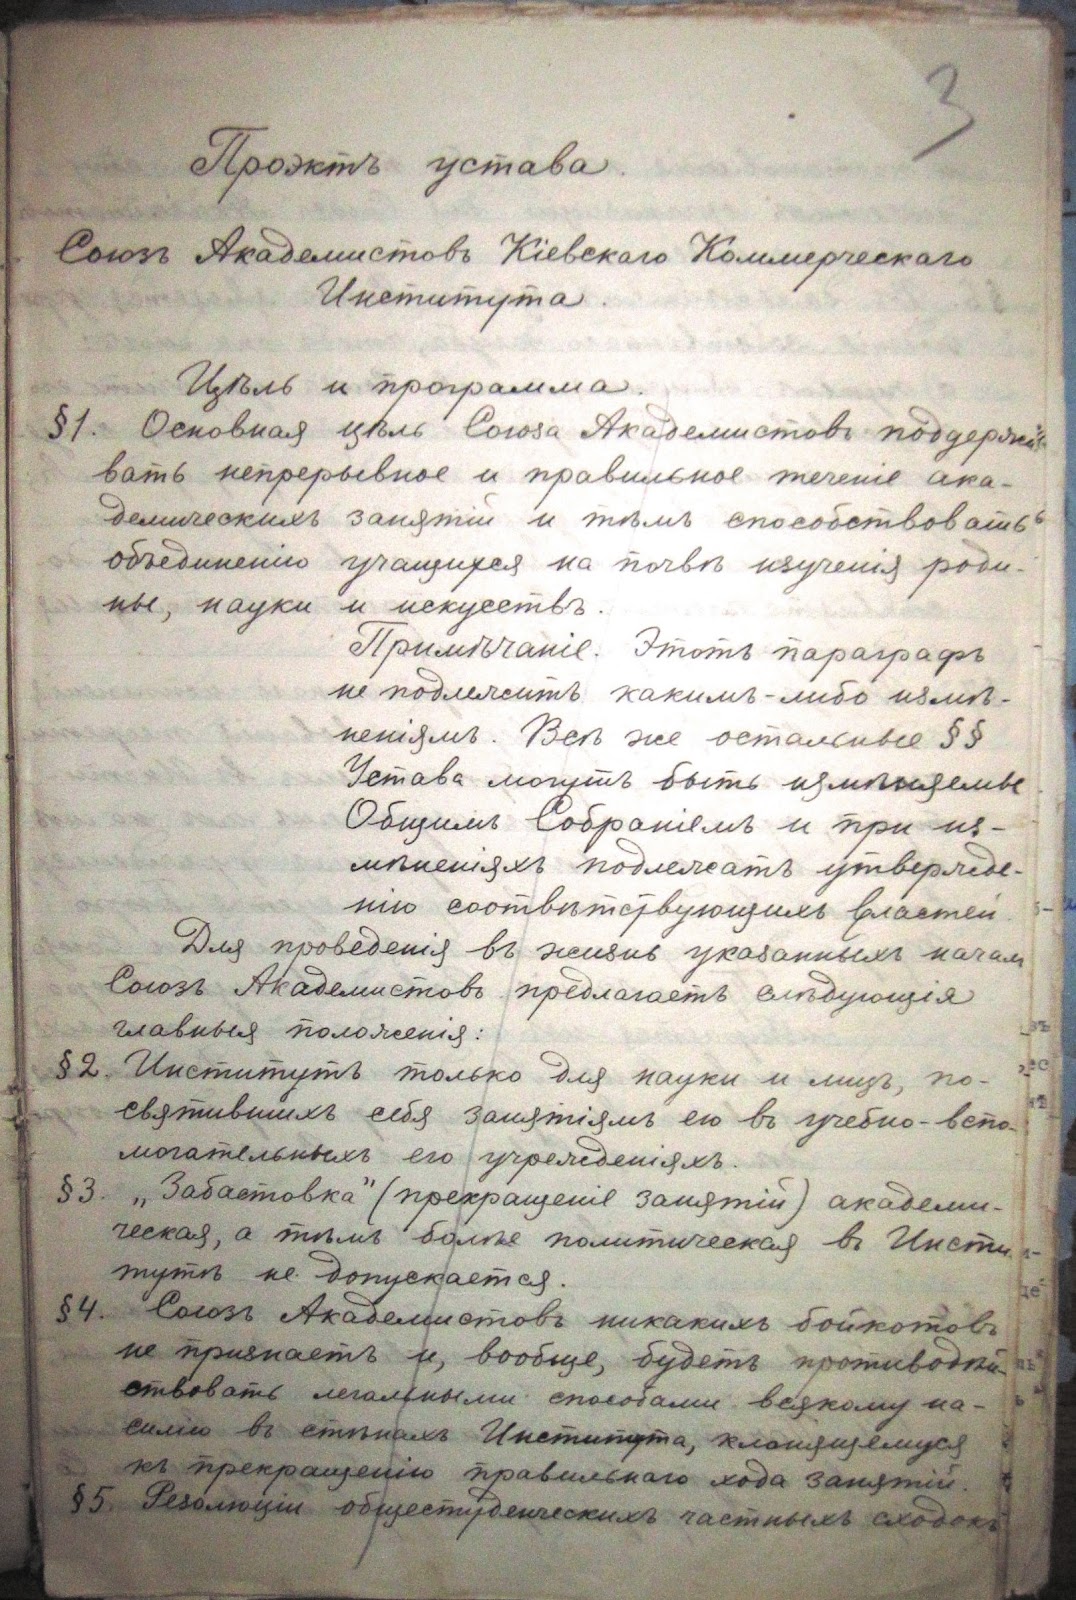 3
Проэктъ устава.
Союзъ Академистовъ Кіевскаго Коммерческаго
Института.
Цѣль и программа.
§1. Основная цѣль Союза Академистовъ поддержи-
вать непрерывное и правильное теченіе ака-
демическихъ занятій и тѣмъ способствовать
объединенію учащихся на почвѣ изученія роди-
ны, науки и искусствъ.
Примѣчаніе. Этотъ параграфъ
не подлежитъ какимъ-либо измѣ-
неніямъ. Всѣ же остальные §§
Устава могутъ быть измѣняемы
Общимъ Собраніемъ и при из-
мѣненіяхъ подлежатъ утвержде-
нію соотвѣтствующихъ властей
Для проведенія въ жизнь указанныхъ началъ
Союзъ Академистовъ предлагаетъ слѣдующія
главныя положенія:
§2. Институтъ только для науки и лицъ, по-
святившихъ себя занятіямъ ею въ учебно-вспо-
могательныхъ его учрежденіяхъ.
§3. „Забастовка" (прекращеніе занятій) академи-
ческая, а тѣмъ болѣе политическая въ Инсти-
тутѣ не допускается.
§4. Союзъ Академистовъ никакихъ бойкотовъ
не признаетъ и, вообще, будетъ противодѣй-
ствовать легальными способами всякому на-
силію въ стѣнахъ Института, клонящемуся
къ прекращенію правильнаго хода занятій.
§5. Резолюціи общестуденческихъ частныхъ сходокъ